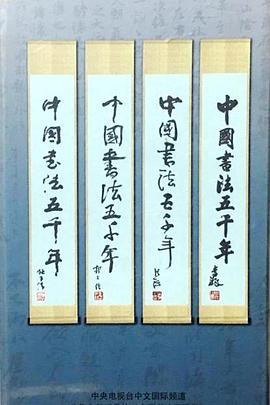 中國書法五千年
中國書法五千年
中國書法五千年
中國書法五千年
中央电视台中文国际频道